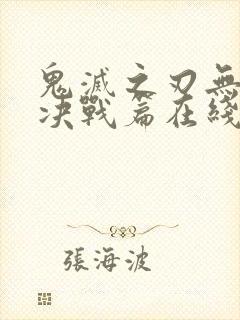 鬼滅之刃無
决戰篇在綫
張海波